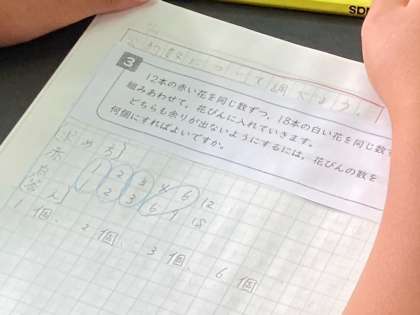 公約数について調べよう。
3
12本の赤い花を同じ数ずつ，18本の白い花を同じ数
組みあわせて，花びんに入れていきます。
どちらも余りが出ないようにするには，花びんの数を
何個にすればよいですか。
求め方
赤 1 2 3 4 6 12
白 1 2 3 6 9 18
答え
1個、2個、3個、6個